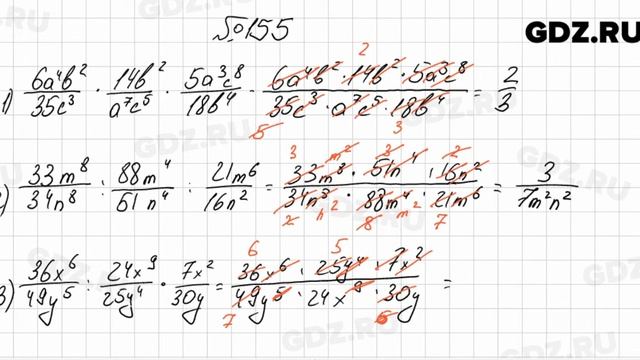 №155
GDZ.RU
1) 6a⁴b²/35c³ · 14b²/a⁷c⁵ · 5a³c⁸/18b⁴ · 6a⁴b² · 14b² · 5a³c⁸/35c³ · a⁷c⁵ · 18b⁴ = 2/3
2) 33m⁸/34n⁸ : 88m⁴/51n⁴ : 21m⁶/16n² = 33m⁸ · 51n⁴ · 16n²/34n⁸ · 88m⁴ · 21m⁶ = 3/7m²n²
3) 36x⁶/49y⁵ : 24x⁹/25y⁴ · 7x²/30y = 36x⁶ · 25y⁴ · 7x²/49y⁵ · 24x⁹ · 30y =